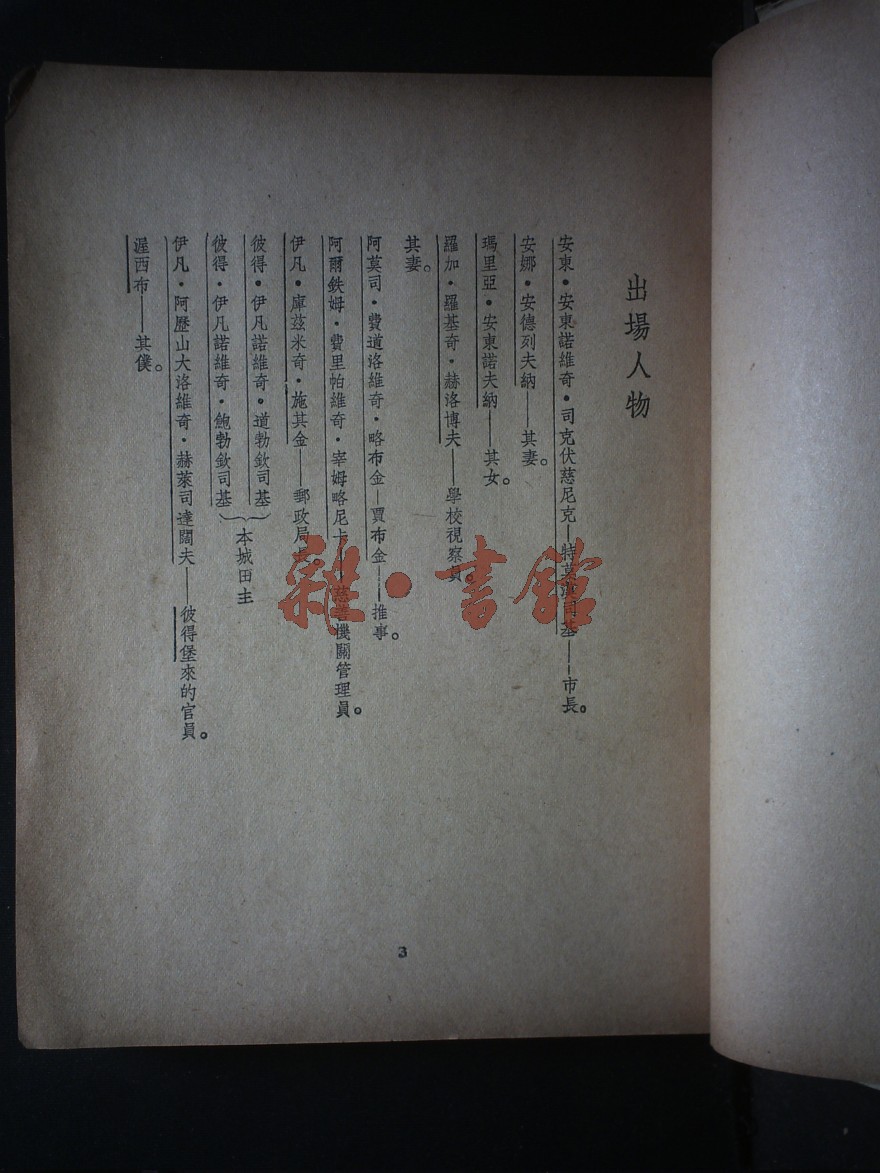 出場人物
安東•安東諾維奇•司克伏慈尼克—特莫漠司基——市長。
安娜•安德列夫納——其妻。
瑪里亞•安東諾夫納——其女。
羅加•羅基奇•赫洛博夫——學校視察員。
其妻。
阿莫司•費道洛維奇•略布金—賈布金——推事。
阿爾鉄姆•費里帕維奇•宰姆略尼卡——慈善機關管理員。
伊凡•庫兹米奇•施其金——郵政局長。
彼得•伊凡諾維奇•道勃欽司基
彼得•伊凡諾維奇•鮑勃欽司基
本城田主
伊凡•阿歷山大洛維奇•赫萊司達闊夫——彼得堡來的官員。
渥西布——其僕。
3
雜•書館